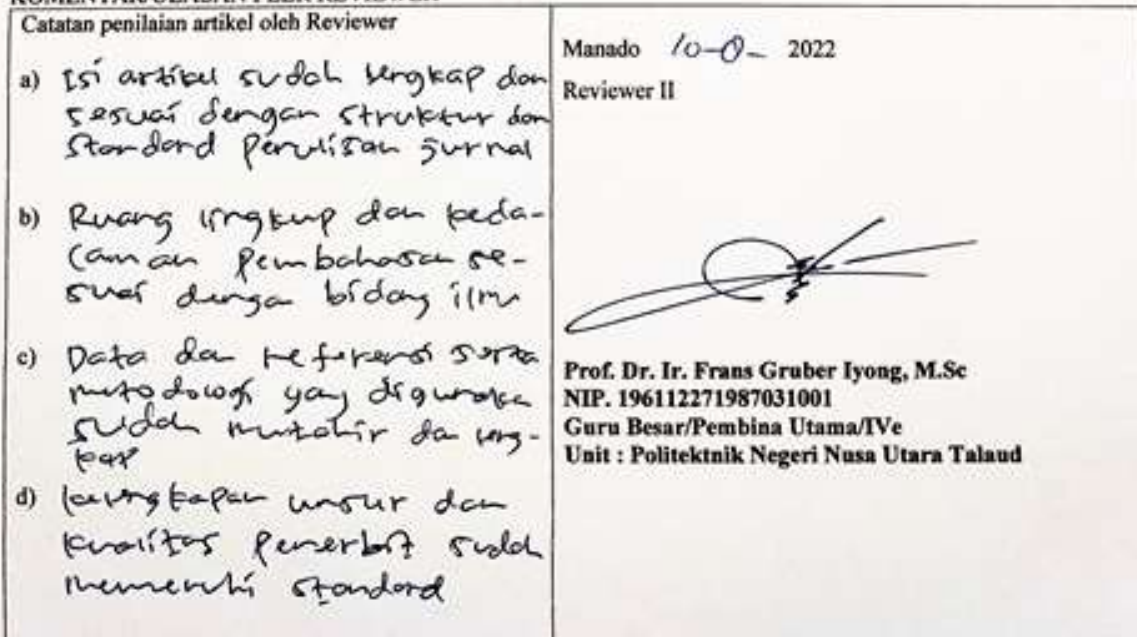 KOMENTAR/ULASAN PEER REVIEWER
Catatan penilaian artikel oleh Reviewer
a) Isi artikel sudah lengkap dan
sesuai dengan struktur dan
standard penulisan jurnal
b) Ruang lingkup dan keda-
laman pembahasan se-
suai dengan bidang ilmu
c) Data dan referensi serta
metodologi yang digunakan
sudah mutahir dan leng-
kap
d) kelengkapan unsur dan
kualitas penerbit sudah
memenuhi standard
Manado 10- 2022
Reviewer II
Prof. Dr. Ir. Frans Gruber Iyong, M.Sc
NIP. 196112271987031001
Guru Besar/Pembina Utama/IVe
Unit : Politektnik Negeri Nusa Utara Talaud